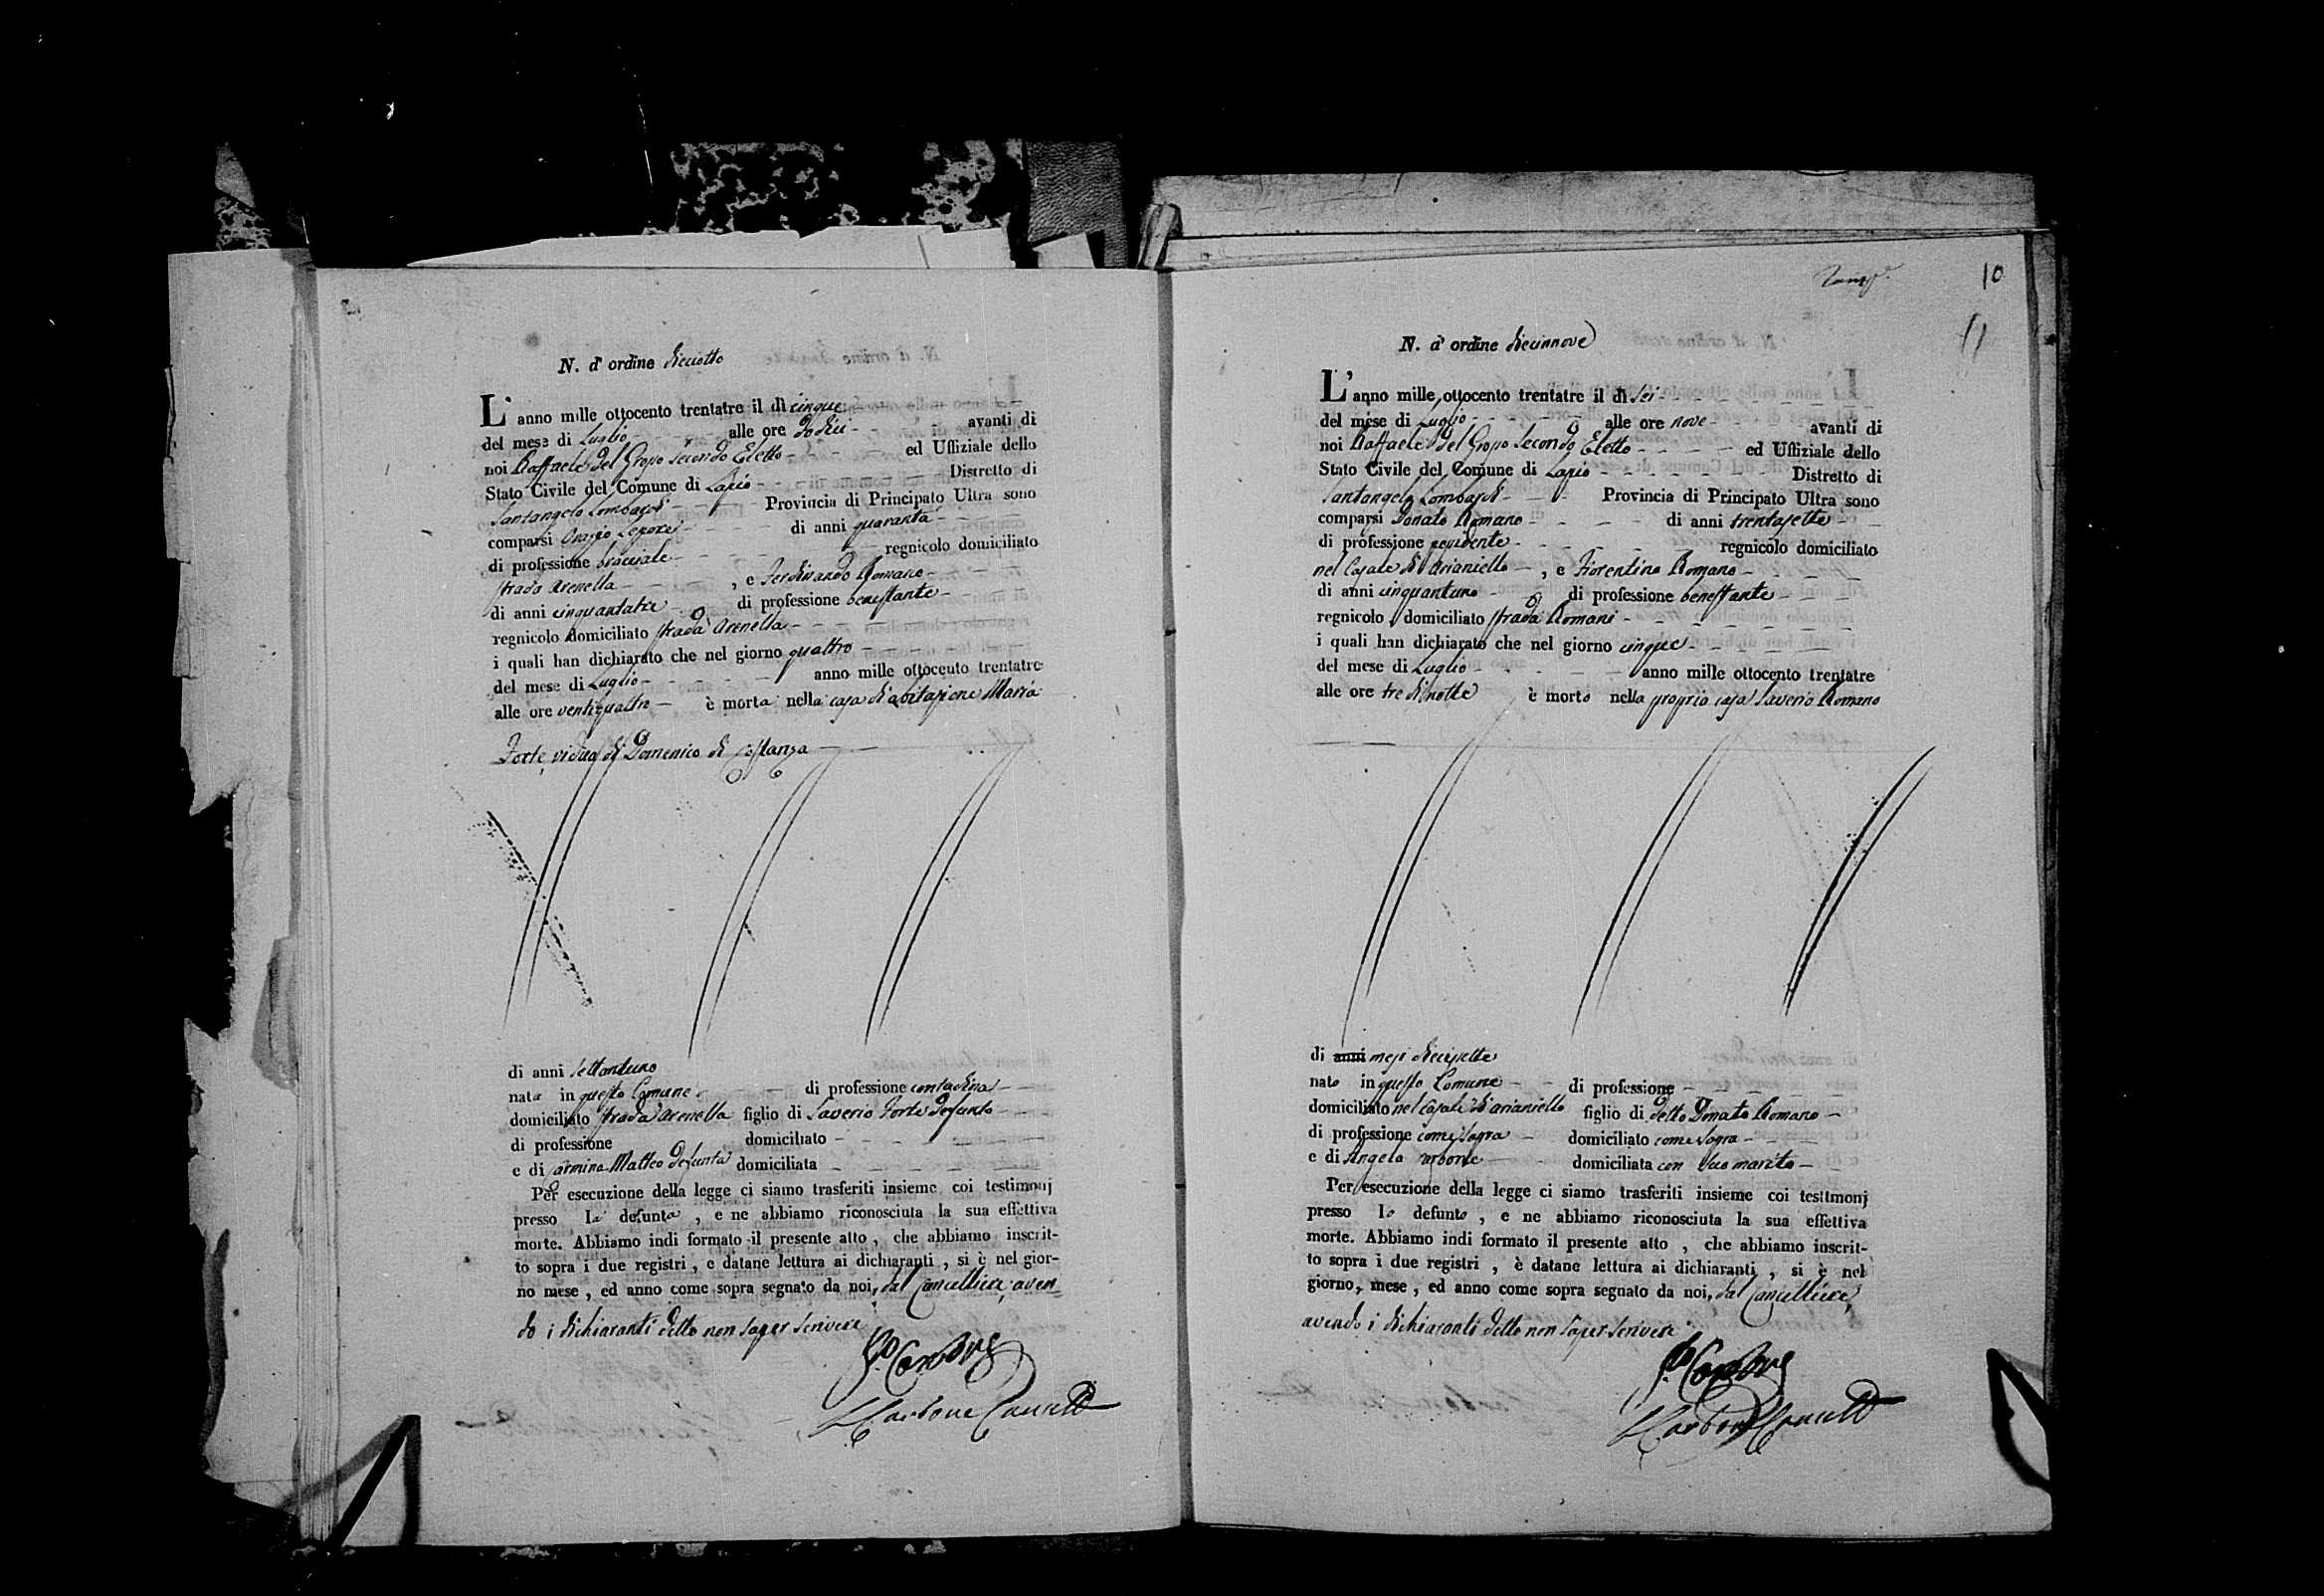 N. d' ordine diciotto
L' anno mille ottocento trentatre il dì cinque
del mese di Luglio alle ore dodici avanti di
noi Raffaele del Grosso Secondo Eletto ed Uffiziale dello
Stato Civile del Comune di Lapio Distretto di
Santangelo Lombardi Provincia di Principato Ultra sono
comparsi Orazio Lepore di anni quaranta
di professione bracciale regnicolo domiciliato
strada Arenella , e Ferdinando Romano
di anni cinquantatre di professione benestante
regnicolo domiciliato strada Arenella
i quali han dichiarato che nel giorno quattro
del mese di Luglio anno mille ottocento trentatre
alle ore ventiquattro è morta nella casa d'abitazione Maria
Forte vidua di Domenico di Costanza
di anni settantuno
nata in questo Comune di professione contadina
domiciliato strada Arenella figlio di Saverio Forte defunto
di professione domiciliato
e di Matteo defunta domiciliata
Per esecuzione della legge ci siamo trasferiti insieme coi testimonj
presso la defunta , e ne abbiamo riconosciuta la sua effettiva
morte. Abbiamo indi formato il presente atto , che abbiamo inscrit-
to sopra i due registri , e datane lettura ai dichiaranti , si è nel gior-
no mese , ed anno come sopra segnato da noi, dal Cancelliere, aven
do i dichiaranti detto non saper scrivere
Carbone Cancell
10
11
N. d' ordine diciannove
L' anno mille ottocento trentatre il dì sei
del mese di Luglio alle ore nove avanti di
noi Raffaele del Grosso Secondo Eletto ed Uffiziale dello
Stato Civile del Comune di Lapio Distretto di
Santangelo Lombardi Provincia di Principato Ultra sono
comparsi Donato Romano di anni trentasette
di professione possidente regnicolo domiciliato
nel Casale di Arianiello , e Fiorentino Romano
di anni cinquantuno di professione benestante
regnicolo domiciliato strada Romani
i quali han dichiarato che nel giorno cinque
del mese di Luglio anno mille ottocento trentatre
alle ore tre di notte è morto nella propria casa Saverio Romano
di anni mesi diecisette
nato in questo Comune di professione
domiciliato nel Casale di Arianiello figlio di detto Donato Romano
di professione come sopra domiciliato come sopra
e di Angela Carbone domiciliata con suo marito
Per esecuzione della legge ci siamo trasferiti insieme coi testimonj
presso lo defunto , e ne abbiamo riconosciuta la sua effettiva
morte. Abbiamo indi formato il presente atto , che abbiamo inscrit-
to sopra i due registri , è datane lettura ai dichiaranti , si è nel
giorno, mese , ed anno come sopra segnato da noi, dal Cancelliere,
avendo i dichiaranti detto non saper scrivere
Carbone Cancell